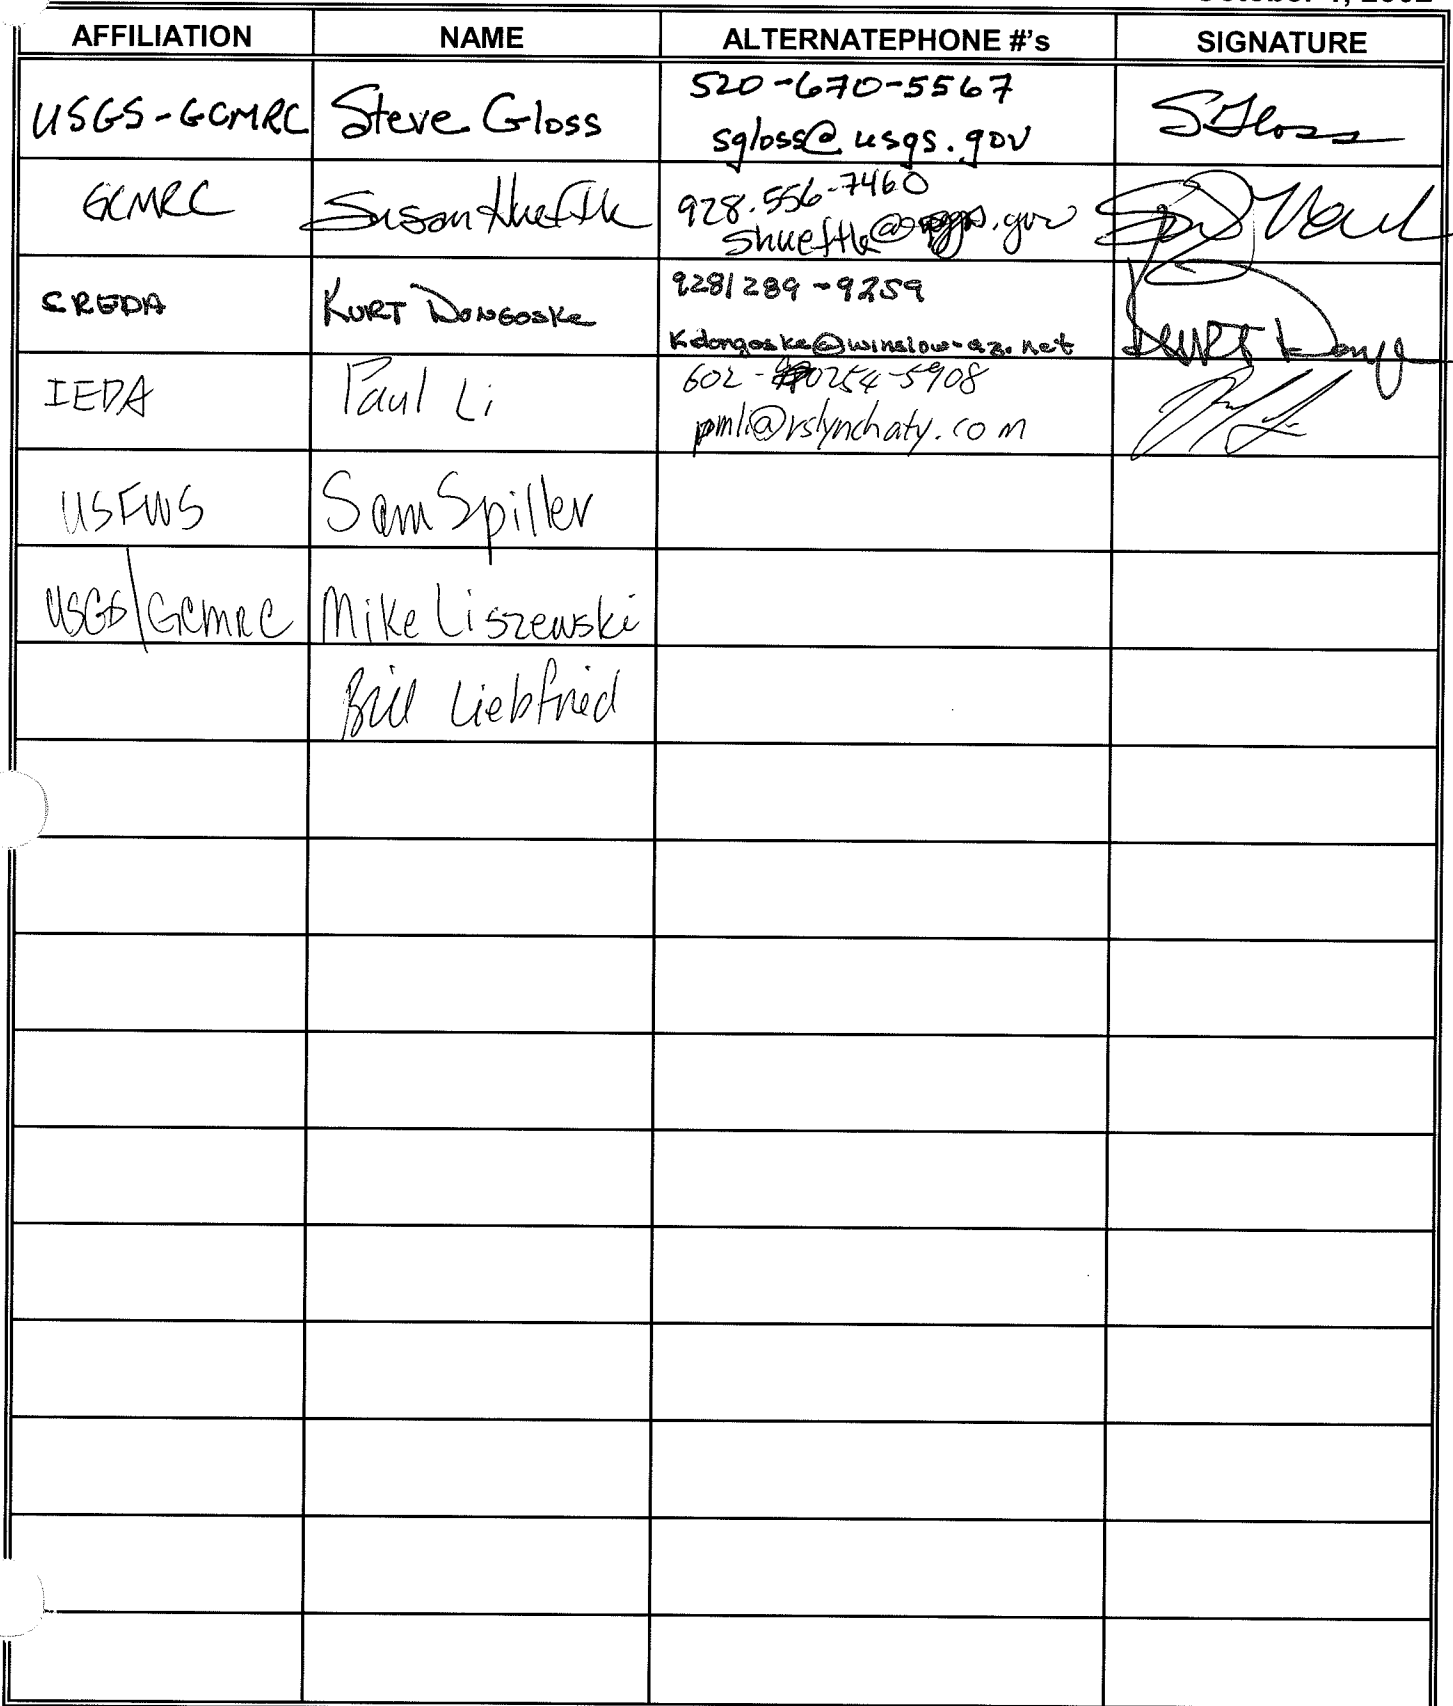 AFFILIATION NAME ALTERNATEPHONE #'s SIGNATURE
USGS-GCMRC Steve Gloss 520-670-5567
sgloss@usgs.gov SGloss
GCMRC Susan Hueftle 928.556-7460
shueftle@usgs.gov
CREDA KURT DONGOSKE 928/289-9259
Kdongoske@winslow-az.net
IEDA Paul Li 602-254-5908
pmli@rslynchaty.com
USFWS Sam Spiller
USGS/GCMRC Mike Liszewski
Bill Liebfried